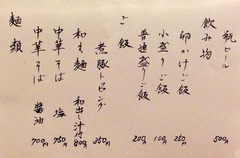 麺類
中華そば 醤油 700円
中華そば 塩 750円
和え麺 和出し汁付 800円
煮豚トッピング 350円
ご飯
普通盛りご飯 200円
小盛りご飯 100円
卵かけご飯 250円
飲み物
瓶ビール 500円